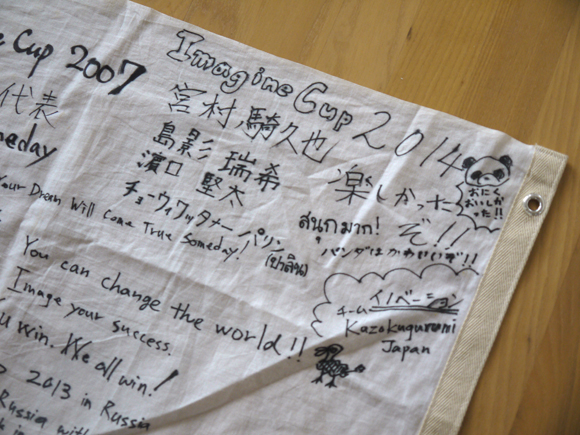 e Cup 2007
代表
omeday
Your Dream Will Come True Someday!
You can change the world!!
Image your success.
u win. We all win!
2013 in Russia
Russia with
Imagine Cup 2014
宮村 騎久也
島影 瑞希
濱口 堅太
チョーウィワッタナー パリン
(ปาลิน)
楽しかった
ぞ!!
สนุกมาก!
パンダはかわいいぞ!!
おにく
おいしか
った!!
チームイノベーション
Kazokugurumi
Japan